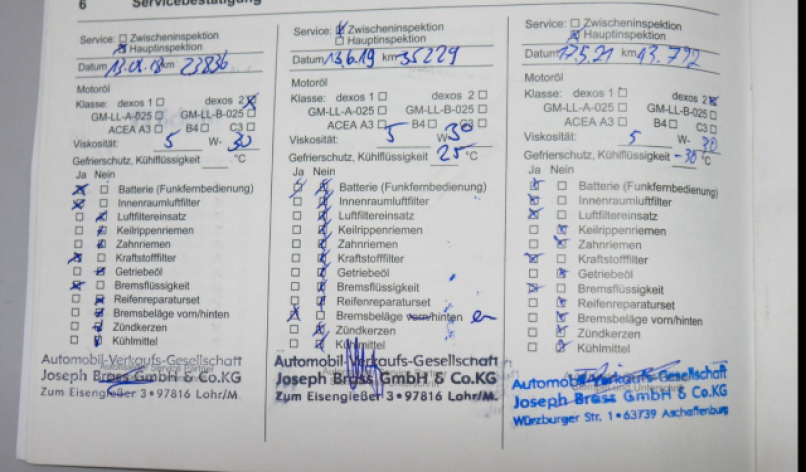 6 Servicebestätigung
Service: Zwischeninspektion
Hauptinspektion
Datum 13.04.18 km 23836
Motoröl
Klasse: dexos 1 dexos 2
GM-LL-A-025 GM-LL-B-025
ACEA A3 B4 C3
Viskosität: 5 W- 30
Gefrierschutz, Kühlflüssigkeit °C
Ja Nein
Batterie (Funkfernbedienung)
Innenraumluftfilter
Luftfiltereinsatz
Keilrippenriemen
Zahnriemen
Kraftstofffilter
Getriebeöl
Bremsflüssigkeit
Reifenreparaturset
Bremsbeläge vorn/hinten
Zündkerzen
Kühlmittel
Automobil-Verkaufs-Gesellschaft
Joseph Brass GmbH & Co.KG
Zum Eisengießer 3•97816 Lohr/M.
Service: Zwischeninspektion
Hauptinspektion
Datum 13.6.19 km 35229
Motoröl
Klasse: dexos 1 dexos 2
GM-LL-A-025 GM-LL-B-025
ACEA A3 B4 C3
Viskosität: 5 W 30
Gefrierschutz, Kühlflüssigkeit 25 °C
Ja Nein
Batterie (Funkfernbedienung)
Innenraumluftfilter
Luftfiltereinsatz
Keilrippenriemen
Zahnriemen
Kraftstofffilter
Getriebeöl
Bremsflüssigkeit
Reifenreparaturset
Bremsbeläge vorn/hinten
Zündkerzen
Kühlmittel
Automobil-Verkaufs-Gesellschaft
Joseph Brass GmbH & Co.KG
Zum Eisengießer 3•97816 Lohr/M.
Service: Zwischeninspektion
Hauptinspektion
Datum 17.5.21 km 43.792
Motoröl
Klasse: dexos 1 dexos 2
GM-LL-A-025 GM-LL-B-025
ACEA A3 B4 C3
Viskosität: 5 W- 30
Gefrierschutz, Kühlflüssigkeit -30 °C
Ja Nein
Batterie (Funkfernbedienung)
Innenraumluftfilter
Luftfiltereinsatz
Keilrippenriemen
Zahnriemen
Kraftstofffilter
Getriebeöl
Bremsflüssigkeit
Reifenreparaturset
Bremsbeläge vorn/hinten
Zündkerzen
Kühlmittel
Automobil-Verkaufs-Gesellschaft
Joseph Brass GmbH & Co.KG
Würzburger Str. 1•63739 Aschaffenburg